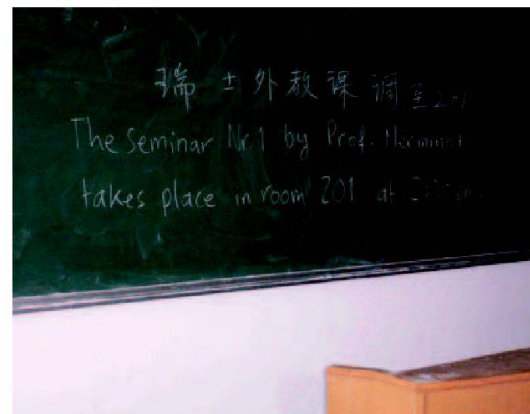 瑞士外教课调至201
The seminar Nr.1 by Prof.
takes place in room 201 at